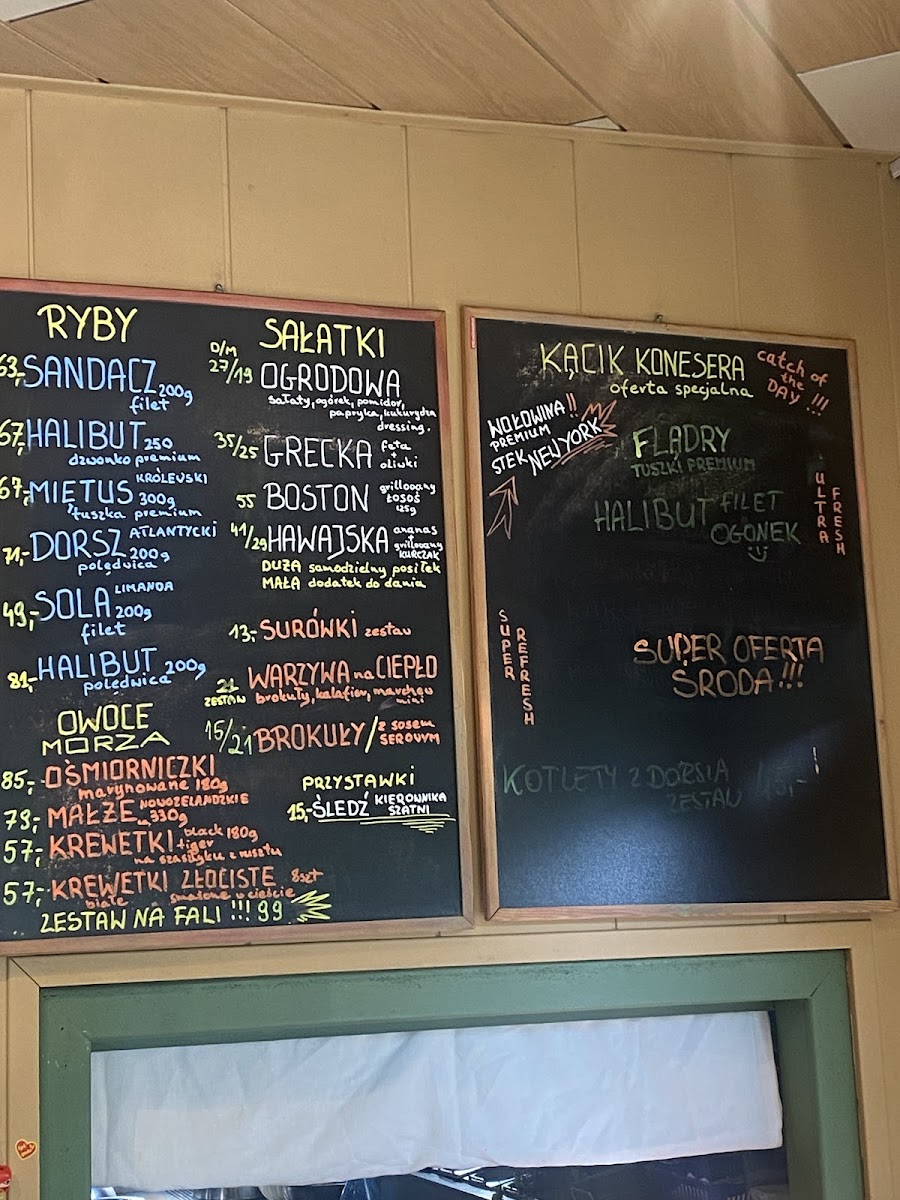 RYBY
63,- SANDACZ 200g
filet
67,- HALIBUT 250
dzwonko premium
67,- MIĘTUS KRÓLEWSKI 300g
tuszka premium
71,- DORSZ ATLANTYCKI 200g
polędwica
49,- SOLA LIMANDA 200g
filet
81,- HALIBUT 200g
polędwica
OWOCE
MORZA
85,- OŚMIORNICZKI
marynowane 180g
79,- MAŁŻE NOWOZELANDZKIE
330g
57,- KREWETKI black tiger 180g
na szaszłyku z rusztu
57,- KREWETKI ZŁOCISTE 8szt
białe smażone w cieście
ZESTAW NA FALI !!! 99
SAŁATKI
D/M
27/19 OGRODOWA
sałaty, ogórek, pomidor,
papryka, kukurydza
dressing.
35/25 GRECKA feta + oliwki
55 BOSTON grillowany łosoś 125g
41/29 HAWAJSKA ananas + grillowany KURCZAK
DUŻA samodzielny posiłek
MAŁA dodatek do dania
13,- SURÓWKI zestaw
21 ZESTAW WARZYWA na CIEPŁO
brokuły, kalafior, marchew mini
15/21 BROKUŁY / z sosem SEROWYM
PRZYSTAWKI
15,- ŚLEDŹ KIEROWNIKA SZATNI
KĄCIK KONESERA
oferta specjalna
catch of
the
DAY !!!
WOŁOWINA !!
PREMIUM
STEK NEW YORK
FLĄDRY
TUSZKI PREMIUM
HALIBUT FILET
OGONEK
ULTRA
FRESH
SUPER
REFRESH
SUPER OFERTA
ŚRODA !!!
KOTLETY Z DORSZA 45,-
ZESTAW